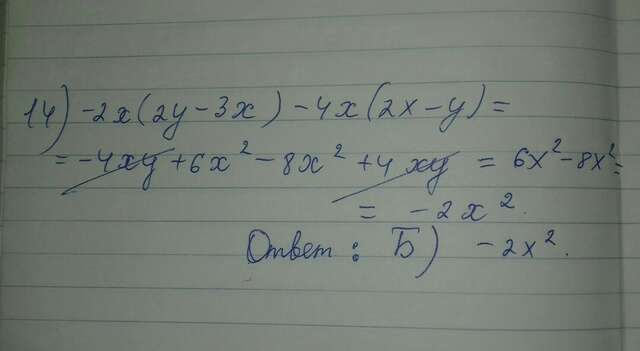 14) -2x(2y-3x)-4x(2x-y)=
= -4xy+6x²-8x²+4xy = 6x²-8x²=
= -2x².
Ответ: Б) -2x².